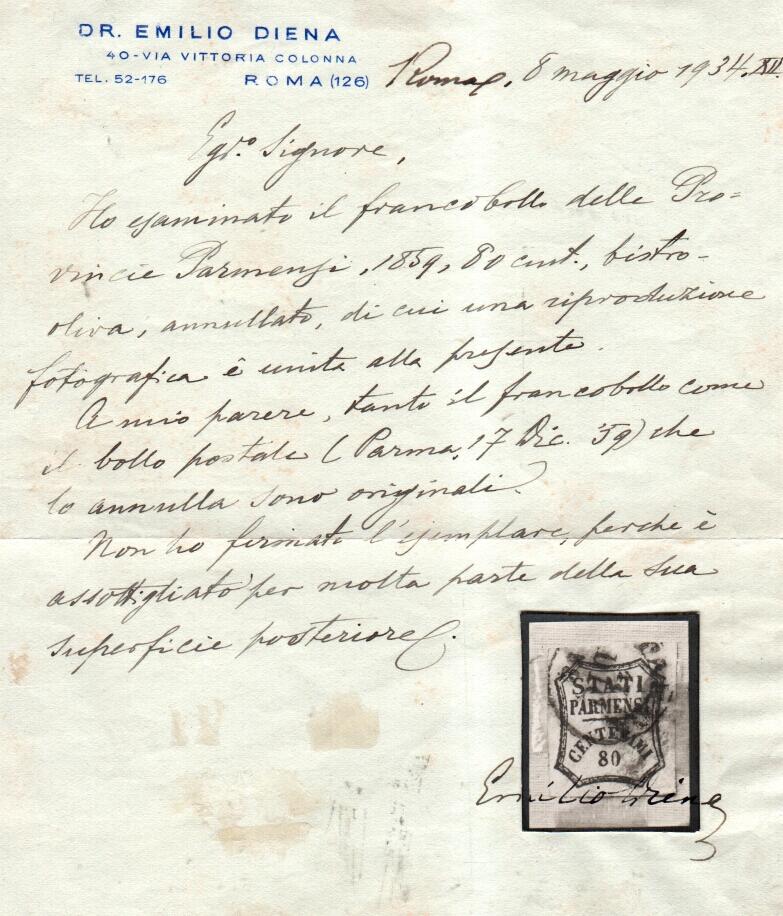 DR. EMILIO DIENA
40-VIA VITTORIA COLONNA
TEL. 52-176 ROMA (126)
Roma, 8 maggio 1934. XII
Egr.º Signore,
Ho esaminato il francobollo delle Pro-
vincie Parmensi, 1859, 80 cent., bistro-
oliva, annullato, di cui una riproduzione
fotografica è unita alla presente.
A mio parere, tanto il francobollo come
il bollo postale (Parma, 17 Dic. 59) che
lo annulla sono originali.
Non ho firmato l'esemplare, perchè è
assottigliato per molta parte della sua
superficie posteriore.
STATI
PARMENSI
CENTESIMI
80
Emilio Diena